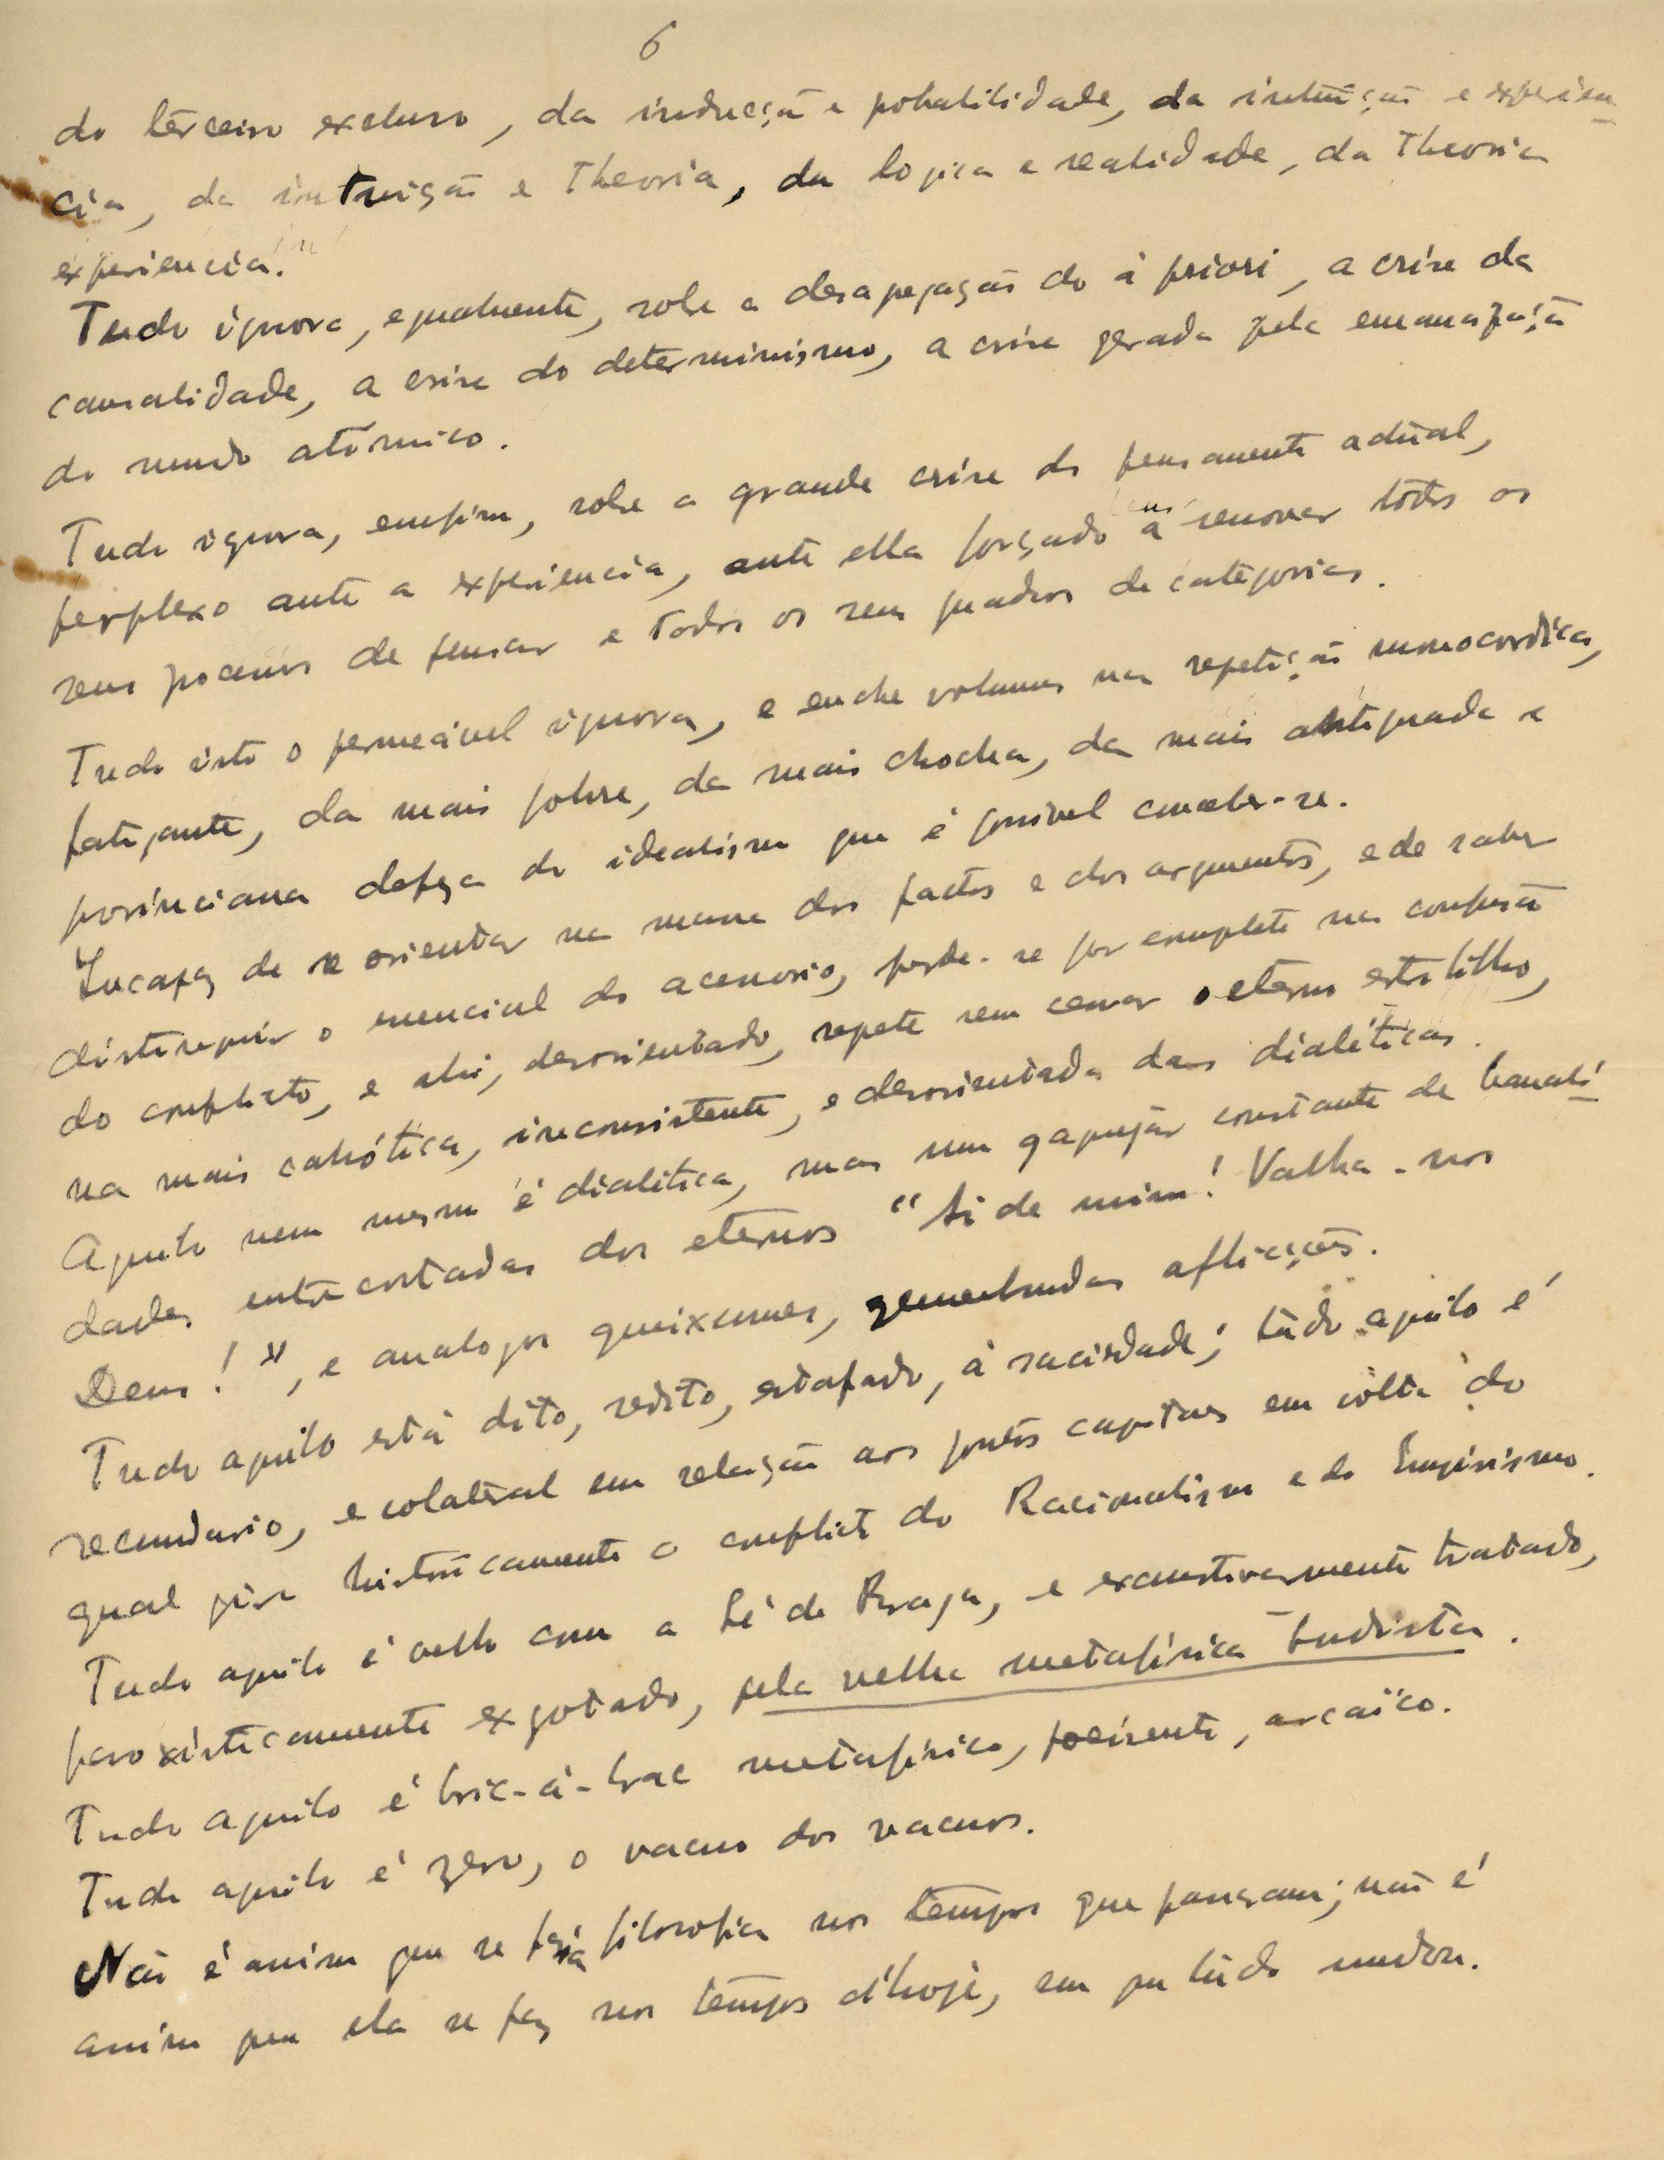 6
do terceiro excluso, da inducção e probabilidade, da intuição e experien
cia, da intuição e theoria, da logica e realidade, da theoria
experiencia.
Tudo ignora, egualmente, sobe a do à priori, a crise da
causalidade, a crise do determinismo, a crise gerada pela
do mundo atómico.
Tudo ignora, emfim, sobe a grande crise do pensamento actual,
perplexo ante a experiencia, ante ella forçado a renovar todos os
seus pocessos de pensar e todos os seus quadros de categorias.
Tudo isto o permeável ignora, e enche volumes na repetição monocordica,
fatigante, da mais pobre, da mais chocha, da mais antiquada e
provinciana defeza do idealismo que é possivel conceber-se.
Incapaz de se orientar na massa dos factos e dos argumentos, e de saber
distinguir o essencial do acessorio, perde-se por completo na confusão
do conflicto, e ahi, desorientado, repete sem cessar o eterno estribilho,
na mais cahótica, inconsistente, e desorientada das dialéticas.
Aquilo nem mesmo é dialética, mas um constante de banali
dades entrecortadas dos eternos "Ai de mim! Valha-nos
Deus!", e analogos queixumes, gemebundas aflicções.
Tudo aquilo está dito, redito, estafado, à saciedade; tudo aquilo é
secundario, e colateral em relação aos pontos capitaes em volta do
qual gira históricamente o conflicto do Racionalismo e do Empirismo.
Tudo aquilo é velho como a Sé de Braga, e exaustivamente tratado,
paroxisticamente exgotado, pela velha metafísica budista.
Tudo aquilo é bric-à-brac metafísico, poeirento, arcaico.
Tudo aquilo é zero, o vacuo dos vacuos.
Não é assim que se fazia filosofia nos tempos que passam; não é
assim que ela se faz nos tempos d'hoje, em que tudo mudou.